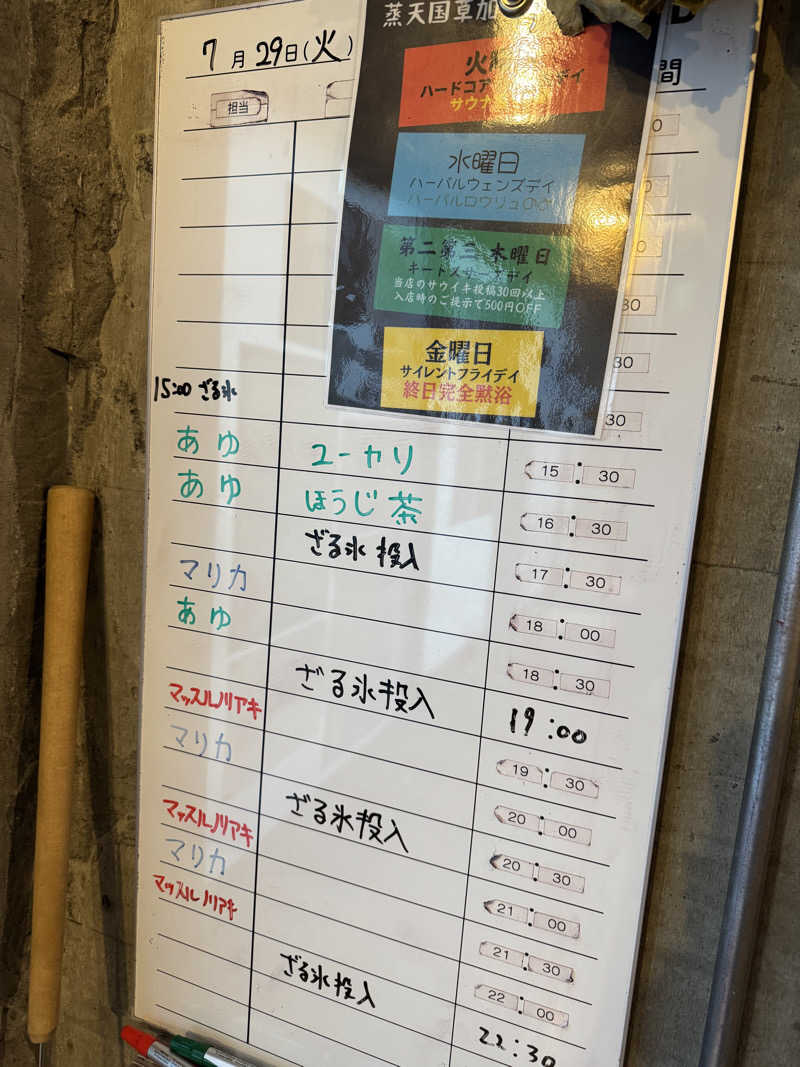 蒸天国草加
7月29日(火)
間
担当
火
ハードコア
デイ
サウナ
水曜日
ハーバルウェンズデイ
ハーバルロウリュ
第二第三 木曜日
当店のサウイキ投稿30回以上
入店時のご提示で500円OFF
金曜日
サイレントフライデイ
終日完全黙浴
0
0
0
30
30
15:00 ざる氷
30
あゆ ユーカリ 15:30
あゆ ほうじ茶 16:30
ざる氷投入 17:30
マリカ 18:00
あゆ 18:30
ざる氷投入 19:00
マッスルノリアキ 19:30
マリカ 20:00
ざる氷投入 20:30
マッスルノリアキ 21:00
マリカ 21:30
マッスルノリアキ 22:00
ざる氷投入 22:30